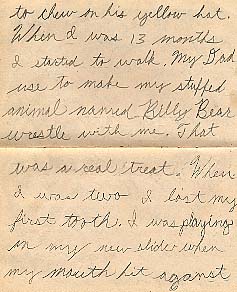 to chew on his yellow hat.
When I was 13 months
I started to walk. My Dad
use to make my stuffed
animal named Billy Bear
wrestle with me. That
was a real treat. When
I was two I lost my
first tooth. I was playing
on my new slider when
my mouth hit against